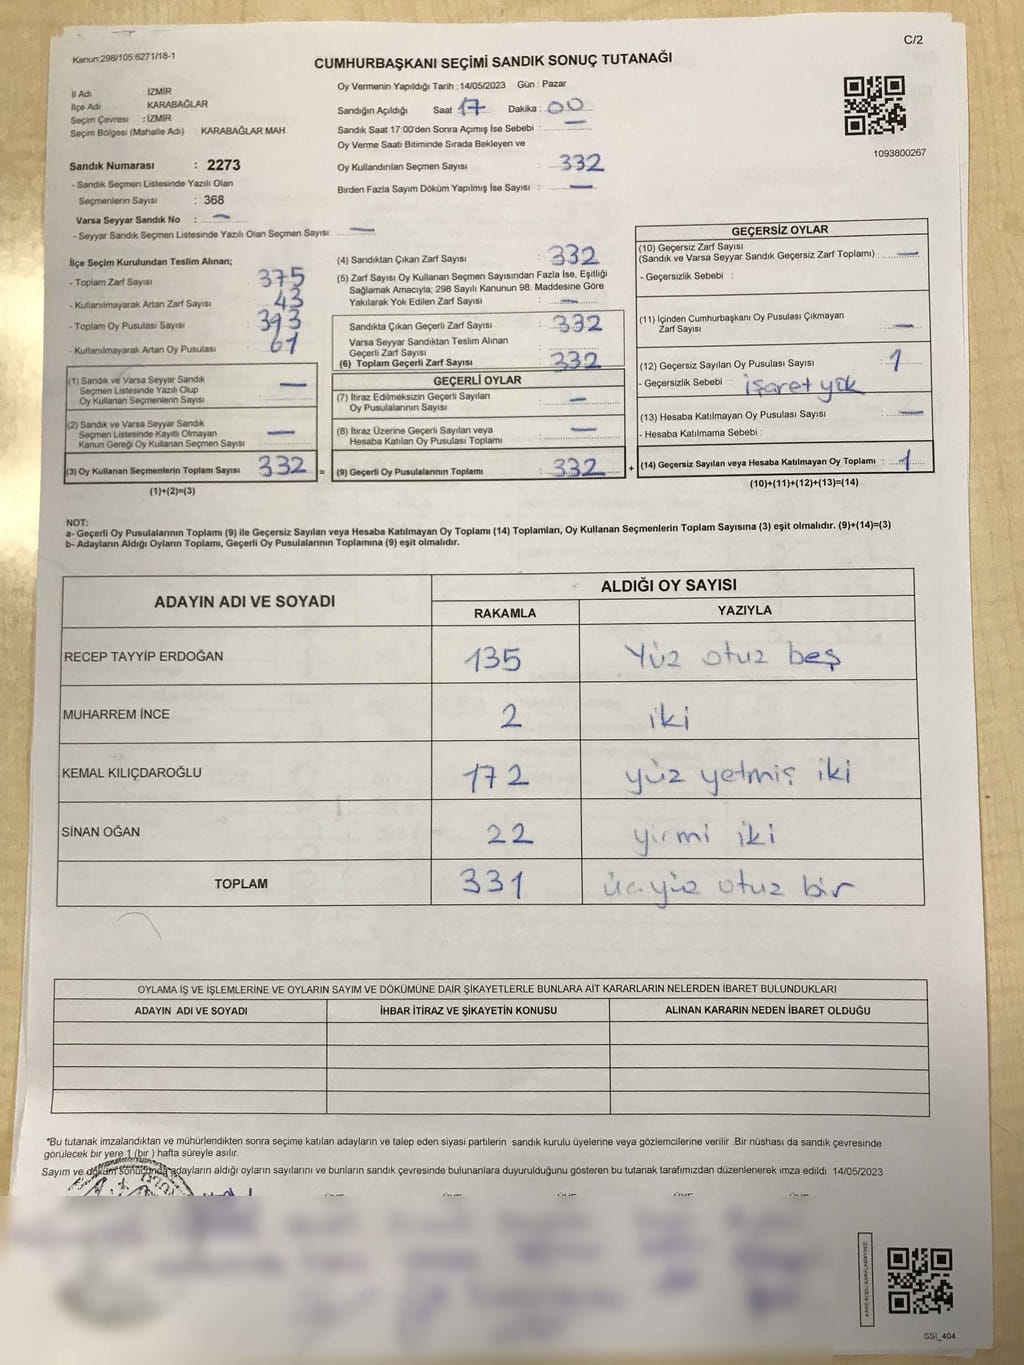 C/2
Kanun;298/105;6271/18-1
CUMHURBAŞKANI SEÇİMİ SANDIK SONUÇ TUTANAĞI
İl Adı : İZMİR
İlçe Adı KARABAĞLAR
Seçim Çevresi : İZMİR
Seçim Bölgesi (Mahalle Adı) KARABAĞLAR MAH
Oy Vermenin Yapıldığı Tarih : 14/05/2023 Gün : Pazar
Sandığın Açıldığı Saat 17 Dakika : 00
Sandık Saat 17:00'den Sonra Açımış İse Sebebi : —
Oy Verme Saati Bitiminde Sırada Bekleyen ve
Oy Kullandırılan Seçmen Sayısı : 332
Birden Fazla Sayım Döküm Yapılmış İse Sayısı : —
1093800267
Sandık Numarası : 2273
- Sandık Seçmen Listesinde Yazılı Olan
Seçmenlerin Sayısı : 368
Varsa Seyyar Sandık No : —
- Seyyar Sandık Seçmen Listesinde Yazılı Olan Seçmen Sayısı: —
İlçe Seçim Kurulundan Teslim Alınan;
- Toplam Zarf Sayısı : 375
- Kullanılmayarak Artan Zarf Sayısı : 43
- Toplam Oy Pusulası Sayısı : 393
- Kullanılmayarak Artan Oy Pusulası : 61
(1) Sandık ve Varsa Seyyar Sandık
Seçmen Listesinde Yazılı Olup
Oy Kullanan Seçmenlerin Sayısı : —
(2) Sandık ve Varsa Seyyar Sandık
Seçmen Listesinde Kayıtlı Olmayan
Kanun Gereği Oy Kullanan Seçmen Sayısı : —
(3) Oy Kullanan Seçmenlerin Toplam Sayısı : 332 =
(1)+(2)=(3)
(4) Sandıktan Çıkan Zarf Sayısı : 332
(5) Zarf Sayısı Oy Kullanan Seçmen Sayısından Fazla İse, Eşitliği
Sağlamak Amacıyla; 298 Sayılı Kanunun 98. Maddesine Göre
Yakılarak Yok Edilen Zarf Sayısı : —
Sandıkta Çıkan Geçerli Zarf Sayısı : 332
Varsa Seyyar Sandıktan Teslim Alınan
Geçerli Zarf Sayısı :
(6) Toplam Geçerli Zarf Sayısı : 332
GEÇERLİ OYLAR
(7) İtiraz Edilmeksizin Geçerli Sayılan
Oy Pusulalarının Sayısı : —
(8) İtiraz Üzerine Geçerli Sayılan veya
Hesaba Katılan Oy Pusulası Toplamı : —
(9) Geçerli Oy Pusulalarının Toplamı : 332 +
GEÇERSİZ OYLAR
(10) Geçersiz Zarf Sayısı
(Sandık ve Varsa Seyyar Sandık Geçersiz Zarf Toplamı) : —
- Geçersizlik Sebebi :
(11) İçinden Cumhurbaşkanı Oy Pusulası Çıkmayan
Zarf Sayısı : —
(12) Geçersiz Sayılan Oy Pusulası Sayısı : 1
- Geçersizlik Sebebi : işaret yok
(13) Hesaba Katılmayan Oy Pusulası Sayısı : —
- Hesaba Katılmama Sebebi :
(14) Geçersiz Sayılan veya Hesaba Katılmayan Oy Toplamı : 1
(10)+(11)+(12)+(13)=(14)
NOT:
a- Geçerli Oy Pusulalarının Toplamı (9) ile Geçersiz Sayılan veya Hesaba Katılmayan Oy Toplamı (14) Toplamları, Oy Kullanan Seçmenlerin Toplam Sayısına (3) eşit olmalıdır. (9)+(14)=(3)
b- Adayların Aldığı Oyların Toplamı, Geçerli Oy Pusulalarının Toplamına (9) eşit olmalıdır.
ADAYIN ADI VE SOYADI ALDIĞI OY SAYISI
RAKAMLA YAZIYLA
RECEP TAYYİP ERDOĞAN 135 Yüz otuz beş
MUHARREM İNCE 2 iki
KEMAL KILIÇDAROĞLU 172 yüz yetmiş iki
SİNAN OĞAN 22 yirmi iki
TOPLAM 331 üçyüz otuz bir
OYLAMA İŞ VE İŞLEMLERİNE VE OYLARIN SAYIM VE DÖKÜMÜNE DAİR ŞİKAYETLERLE BUNLARA AİT KARARLARIN NELERDEN İBARET BULUNDUKLARI
ADAYIN ADI VE SOYADI İHBAR İTİRAZ VE ŞİKAYETİN KONUSU ALINAN KARARIN NEDEN İBARET OLDUĞU
*Bu tutanak imzalandıktan ve mühürlendikten sonra seçime katılan adayların ve talep eden siyasi partilerin sandık kurulu üyelerine veya gözlemcilerine verilir .Bir nüshası da sandık çevresinde
görülecek bir yere 1 (bir ) hafta süreyle asılır.
Sayım ve döküm sonucunda adayların aldığı oyların sayılarını ve bunların sandık çevresinde bulunanlara duyurulduğunu gösteren bu tutanak tarafımızdan düzenlenerek imza edildi. 14/05/2023
SSI_404